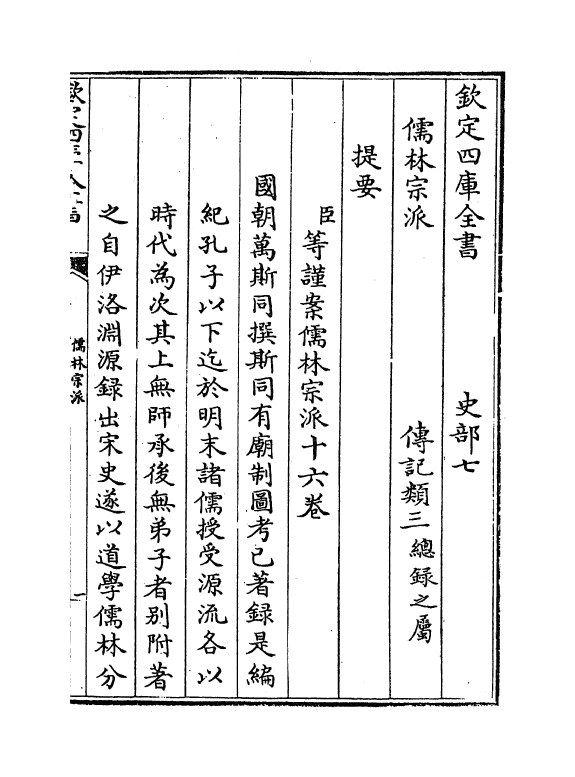 欽定四庫全書　史部七
儒林宗派　傳記類三總録之屬
提要
臣等謹案儒林宗派十六卷
國朝萬斯同撰斯同有廟制圖考已著録是編
紀孔子以下迄於明末諸儒授受源流各以
時代為次其上無師承後無弟子者别附著
之自伊洛淵源録出宋史遂以道學儒林分
欽定四庫全書
儒林宗派
一